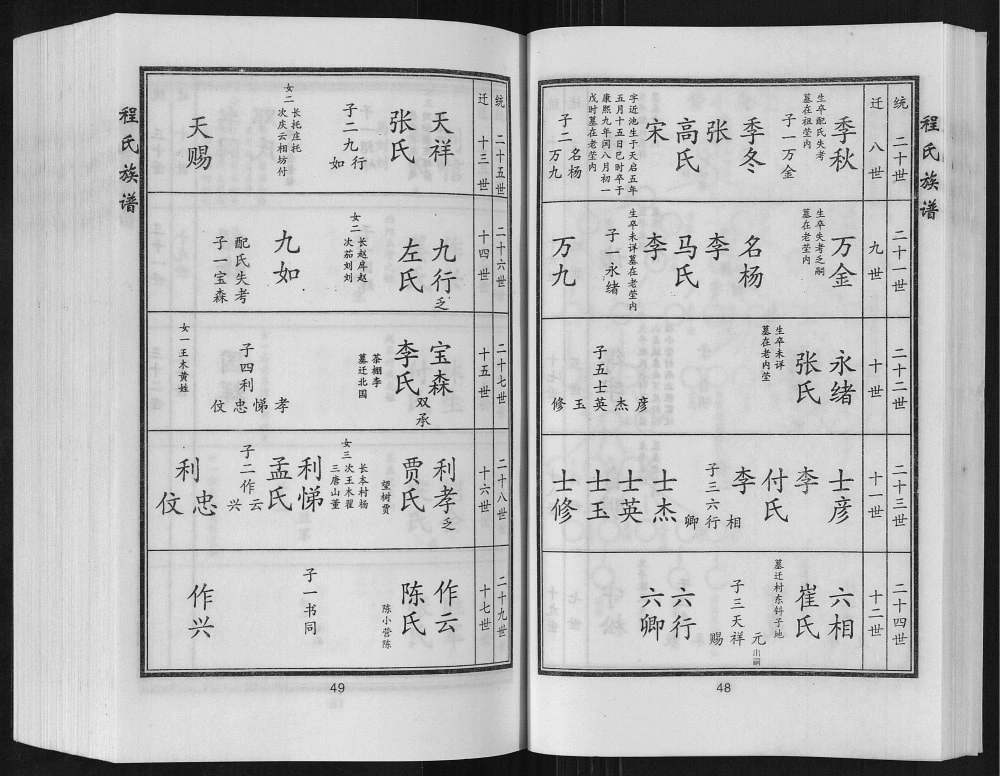 程氏族谱
统二十世
迁八世
季秋
生卒配氏失考
墓在祖茔内
子一万金
季冬
张
高氏
宋
字近池生于天启五年
五月十五日巳时卒于
康熙九年闰八月初一
戌时墓在老茔内
子二名杨
万九
二十一世
九世
万金
生卒失考乏嗣
墓在老茔内
名杨
李
马氏
李
子一永绪
生卒未详墓在老茔内
万九
二十二世
十世
永绪
张氏
生卒未详
墓在老内茔
子五士彦
杰
英
玉
修
二十三世
十一世
士彦
李
付氏
李
子三六相
行
卿
士杰
士英
士玉
士修
二十四世
十二世
六相
崔氏
墓迁村东钭子地
子三天元出嗣
祥
赐
六行
六卿
48
程氏族谱
统二十五世
迁十三世
天祥
张氏
子二九行
如
女二长托庄托
次庆云相坊付
天赐
二十六世
十四世
九行乏
左氏
女二长赵庠赵
次茄刘刘
九如
配氏失考
子一宝森
二十七世
十五世
宝森双承
李氏
茶棚李
墓迁北国
子四利孝
悌
忠
伩
女一王木黄姓
二十八世
十六世
利孝乏
贾氏
望树贾
女三长本村杨
次王木翟
三唐山董
利悌
孟氏
子二作云
兴
利忠
利伩
二十九世
十七世
作云
陈氏
陈小营陈
子一书同
作兴
49